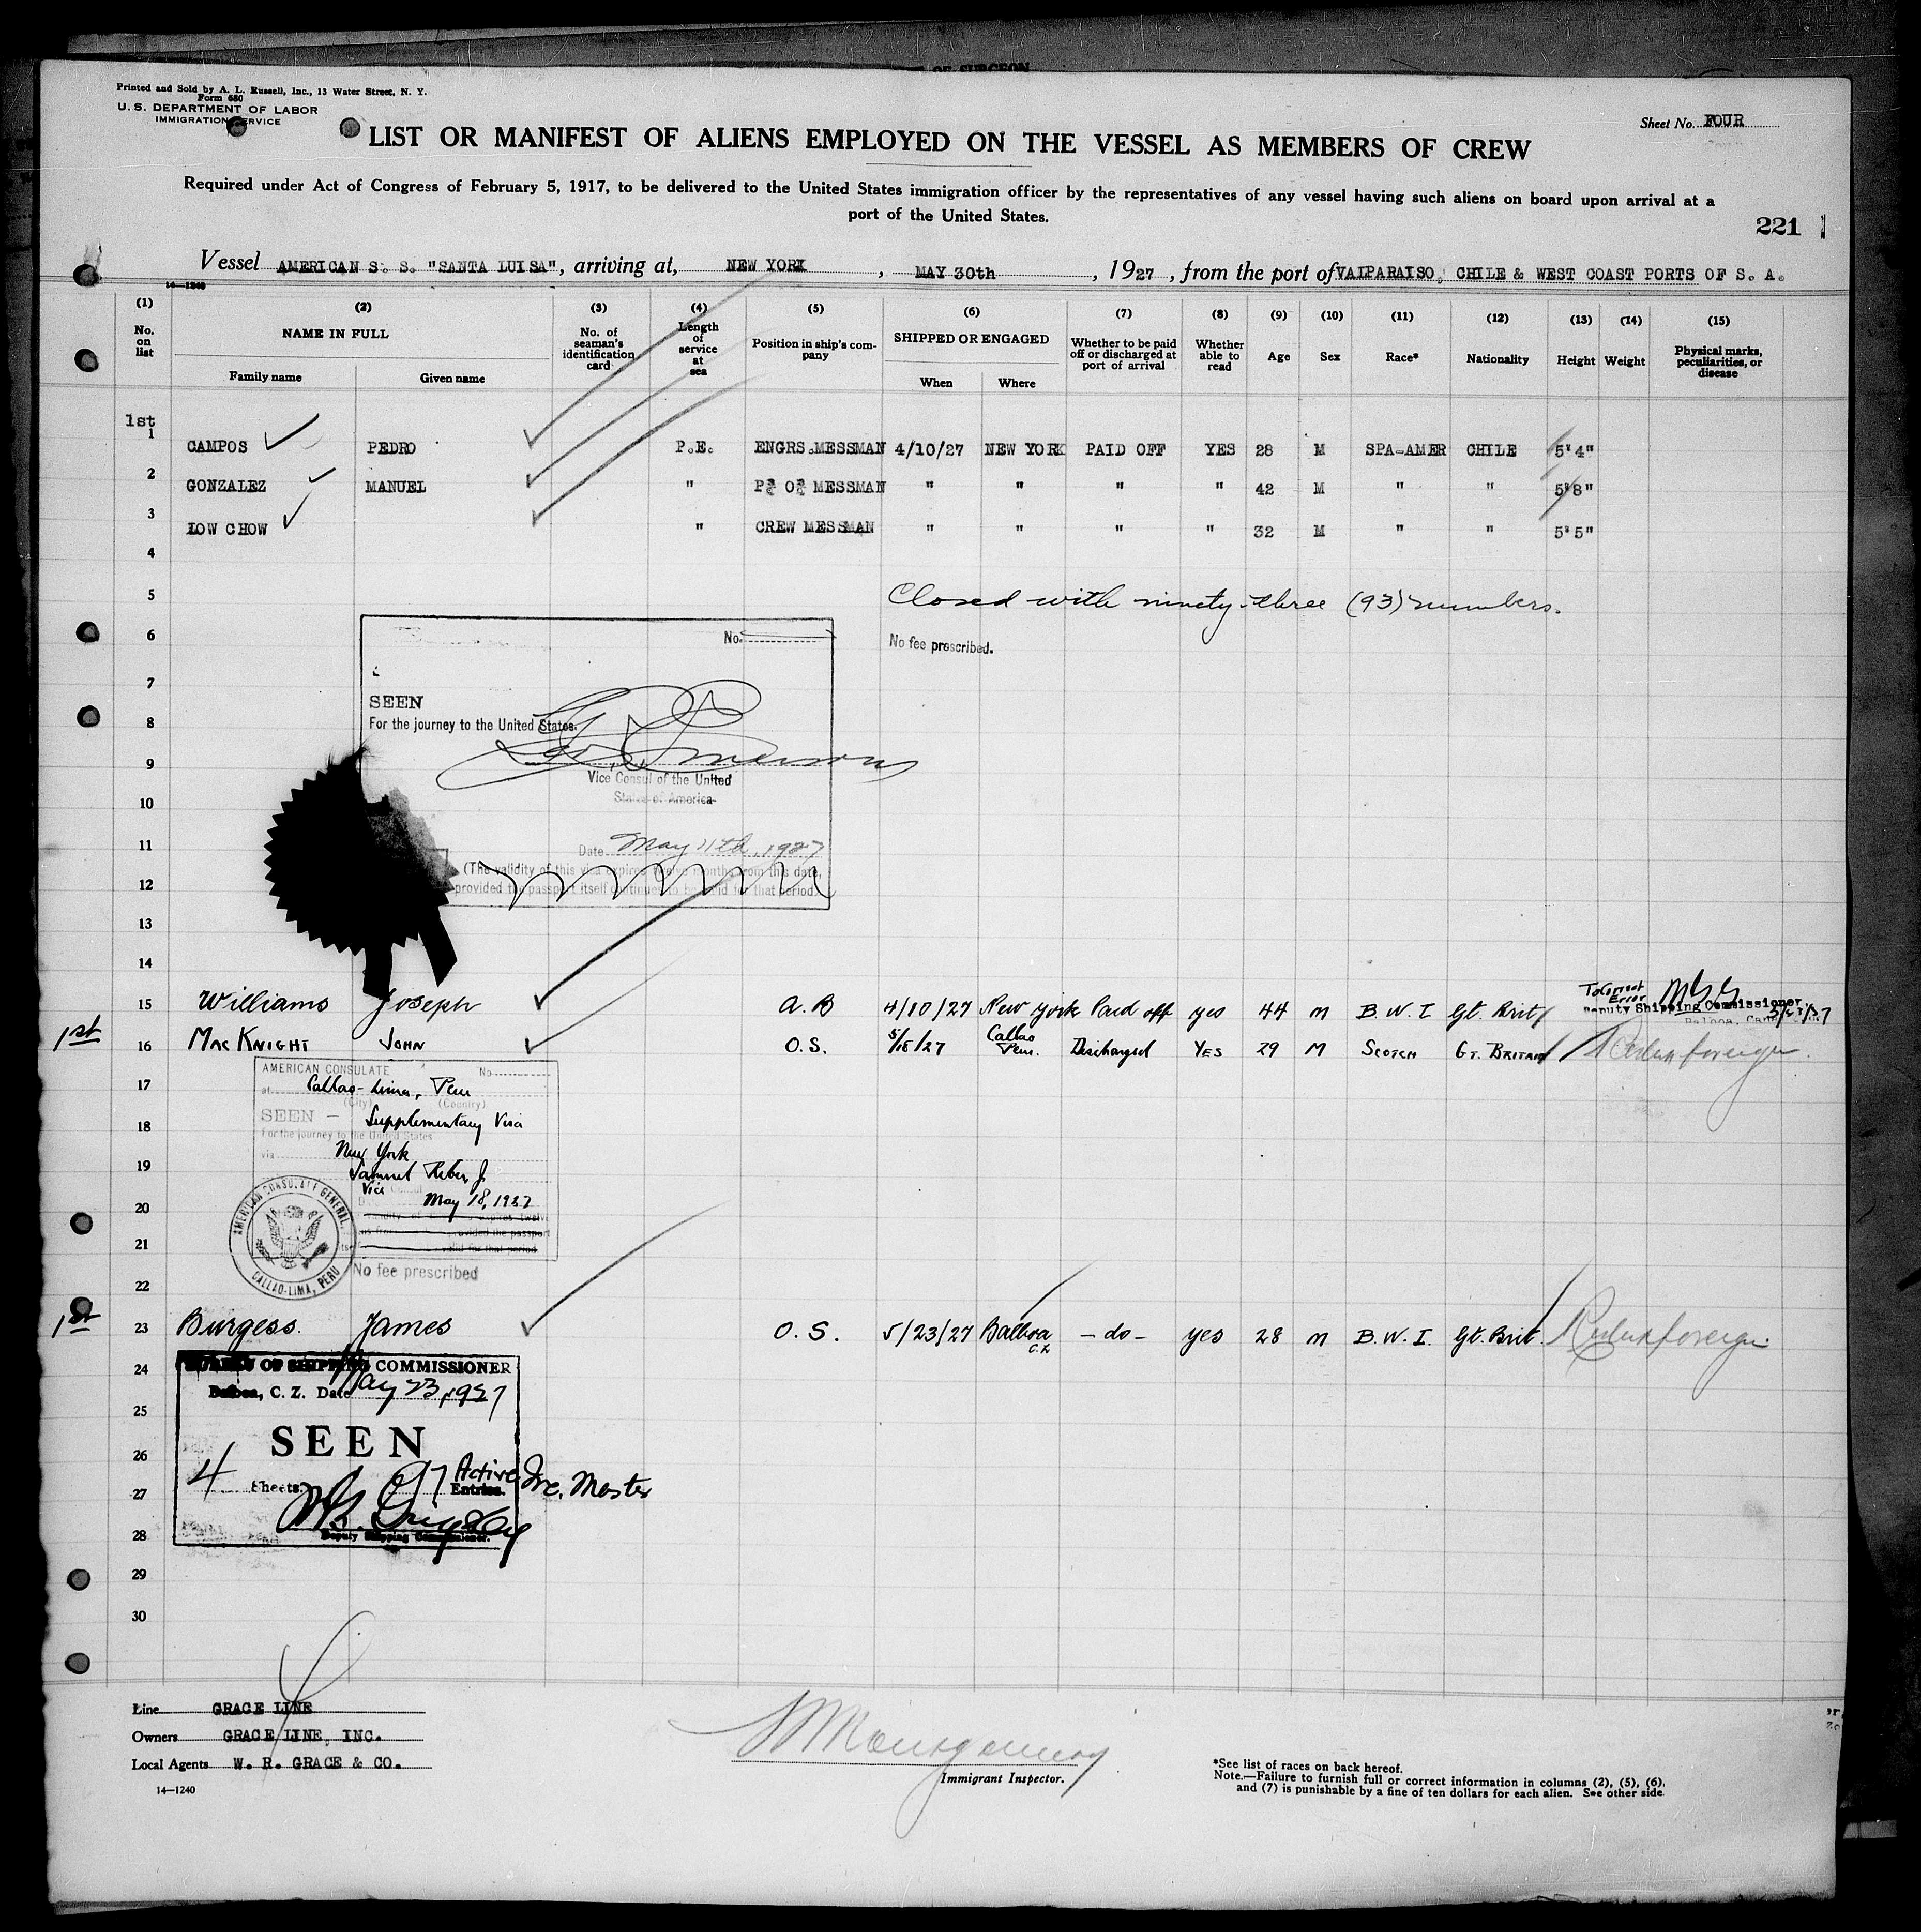 OF SURGEON
Printed and Sold by A. L. Russell, Inc., 13 Water Street, N. Y.
Form 680
U. S. DEPARTMENT OF LABOR
IMMIGRATION SERVICE
Sheet No. FOUR
LIST OR MANIFEST OF ALIENS EMPLOYED ON THE VESSEL AS MEMBERS OF CREW
Required under Act of Congress of February 5, 1917, to be delivered to the United States immigration officer by the representatives of any vessel having such aliens on board upon arrival at a
port of the United States.
221
Vessel AMERICAN S. S. "SANTA LUISA", arriving at, NEW YORK, MAY 30th, 1927, from the port of VALPARAISO, CHILE & WEST COAST PORTS OF S. A.
14—1240
(1) (2) (3) (4) (5) (6) (7) (8) (9) (10) (11) (12) (13) (14) (15)
No. on list
NAME IN FULL
Family name
Given name
No. of seaman's identification card
Length of service at sea
Position in ship's company
SHIPPED OR ENGAGED
When
Where
Whether to be paid off or discharged at port of arrival
Whether able to read
Age
Sex
Race*
Nationality
Height
Weight
Physical marks, peculiarities, or disease
1st
1 CAMPOS PEDRO P.E. ENGRS.MESSMAN 4/10/27 NEW YORK PAID OFF YES 28 M SPA-AMER CHILE 5'4"
2 GONZALEZ MANUEL " P. O. MESSMAN " " " " 42 M " " 5'8"
3 LOW CHOW " CREW MESSMAN " " " " 32 M " " 5'5"
4
5 Closed with ninety-three (93) numbers.
6 No. No fee prescribed.
7
SEEN
8 For the journey to the United States.
9
Vice Consul of the United
10 States of America
11 Date May 11th, 1927
(The validity of this visa expires twelve months from this date,
12 provided the passport itself continues to be valid for that period.
13
14
15 Williams Joseph A. B 4/10/27 New York Paid off yes 44 m B. W. I Gt. Brit
To Correct Error
Deputy Shipping Commissioner.
1st
16 MacKnight John O. S. 5/18/27 Callao Peru. Discharged Yes 29 M Scotch Gt. Britain
AMERICAN CONSULATE No.
17 at Callao-Lima, Peru
(City) (Country)
18 SEEN — Supplementary Visa
For the journey to the United States
via New York
19 Samuel Reber Jr
Vice
20 May 18, 1927
21
AMERICAN CONSULATE GENERAL, CALLAO-LIMA, PERU
No fee prescribed
22
1st
23 Burgess. James O. S. 5/23/27 Balboa C.Z. - do - yes 28 m B. W. I. Gt. Brit.
24 OF SHIPPING COMMISSIONER
Balboa, C. Z. Date May 23, 1927
25
SEEN
26
4 Sheets. 97 Active Entries. Inc. Master
27
28 Deputy Shipping Commissioner.
29
30
Line GRACE LINE
Owners GRACE LINE, INC.
Local Agents W. R. GRACE & CO.
14—1240
Montgomery
Immigrant Inspector.
*See list of races on back hereof.
Note.—Failure to furnish full or correct information in columns (2), (5), (6),
and (7) is punishable by a fine of ten dollars for each alien. See other side.